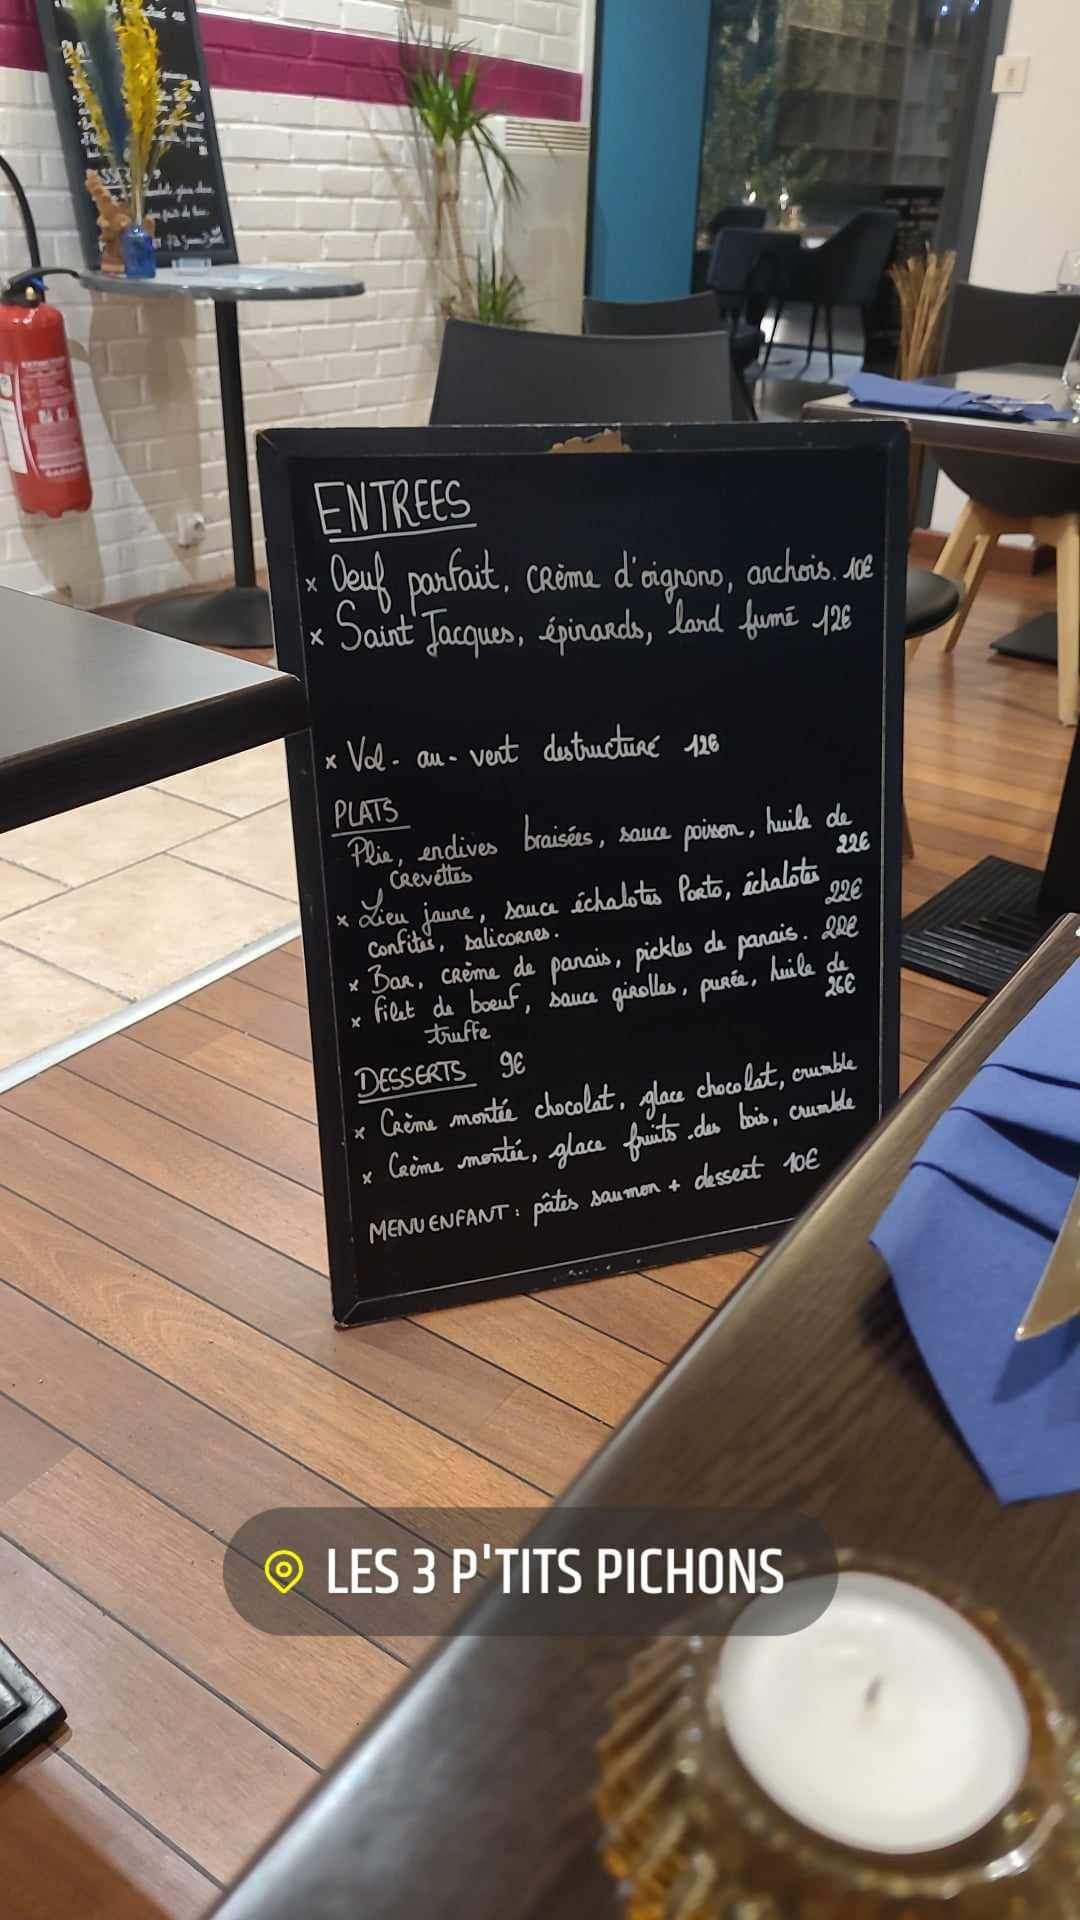 ENTREES
x Oeuf parfait, crème d'oignons, anchois. 10€
x Saint Jacques, épinards, lard fumé 12€
x Vol-au-vent destructuré 12€
PLATS
Plie, endives braisées, sauce poisson, huile de
crevettes 22€
x Lieu jaune, sauce échalotes Porto, échalotes
confites, salicornes. 22€
x Bar, crème de panais, pickles de panais. 22€
x Filet de boeuf, sauce girolles, purée, huile de
truffe 26€
DESSERTS 9€
x Crème montée chocolat, glace chocolat, crumble
x Crème montée, glace fruits des bois, crumble
MENU ENFANT : pâtes saumon + dessert 10€
LES 3 P'TITS PICHONS